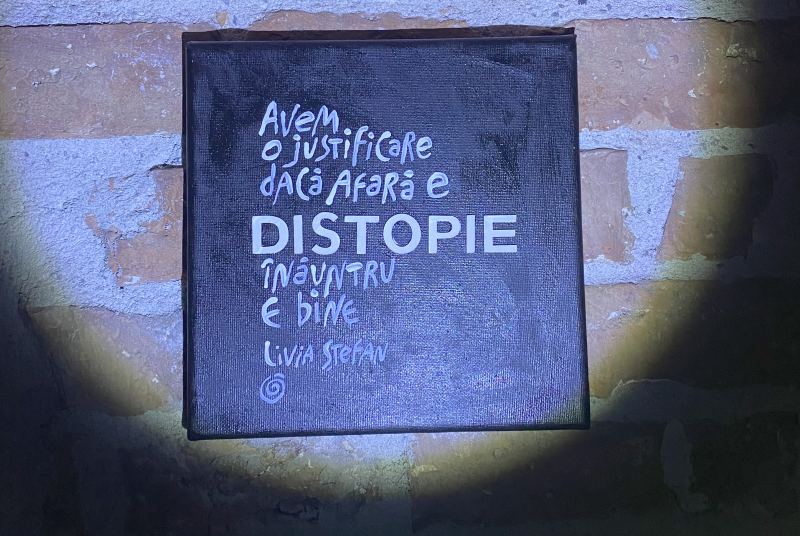 Avem
o justificare
dacă afară e
DISTOPIE
înăuntru
e bine
Livia Ștefan